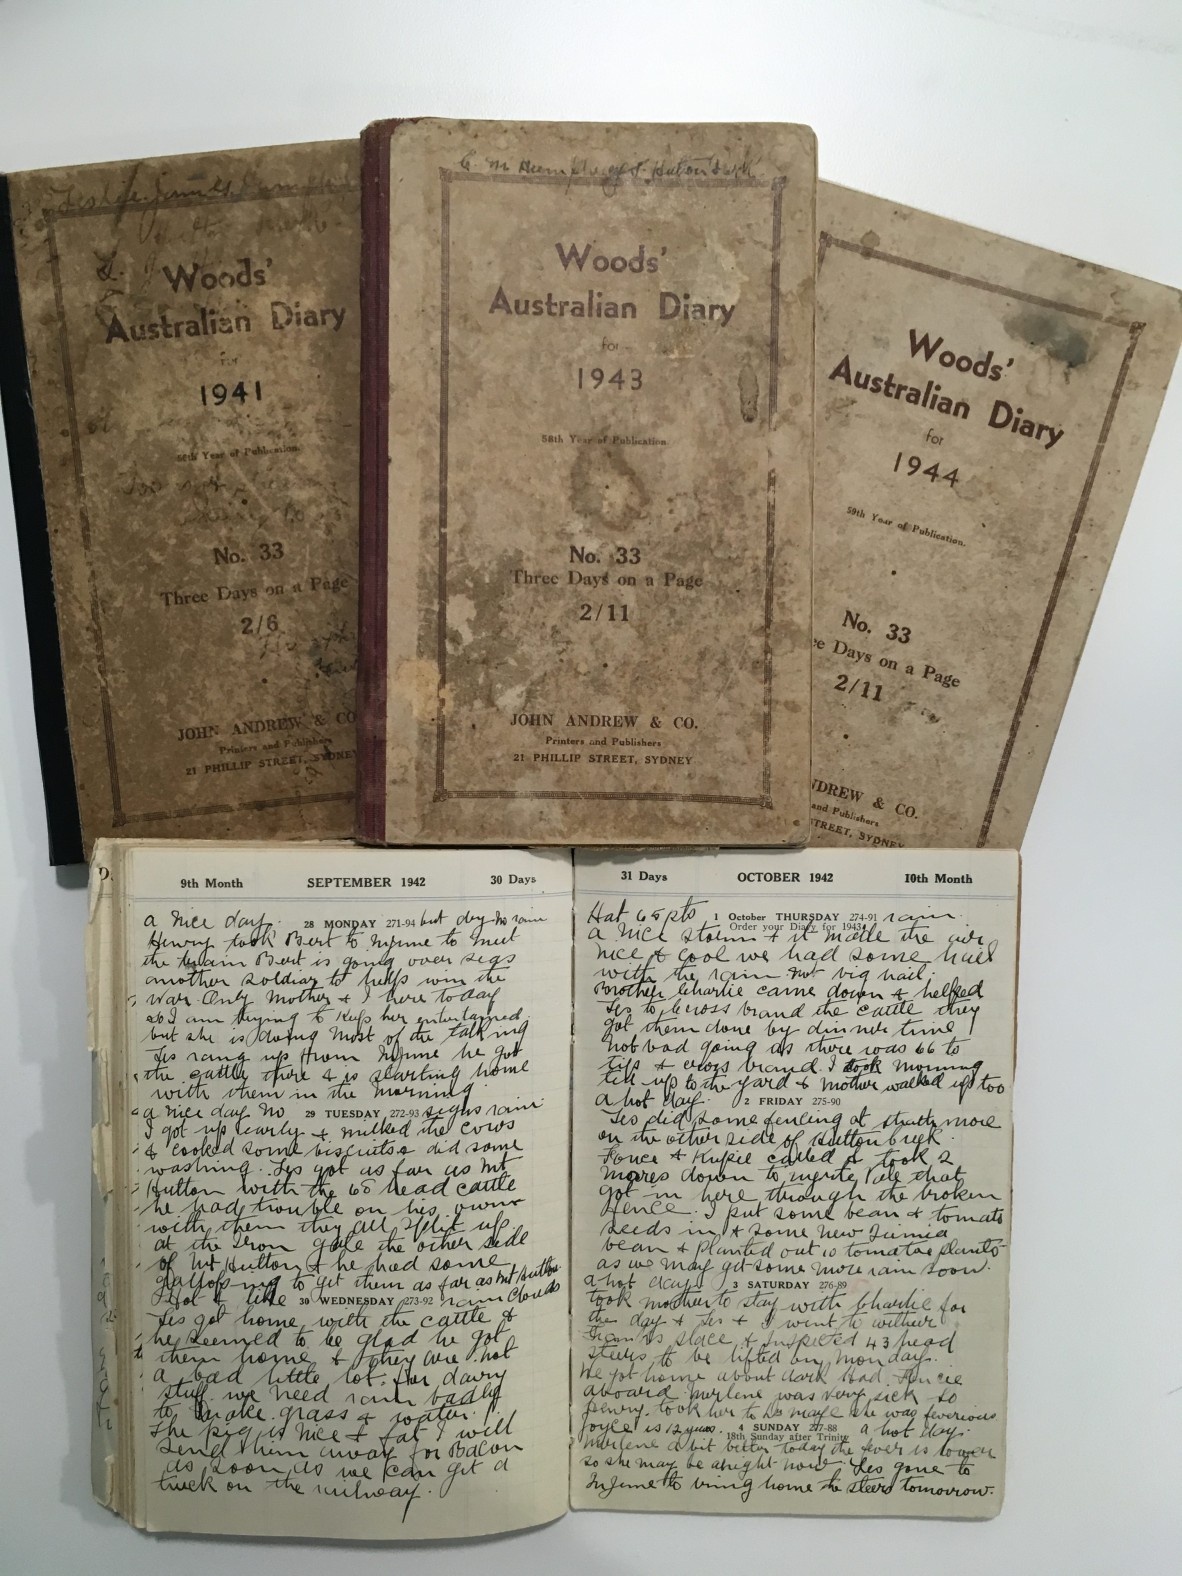 Leslie James
Woods'
Australian Diary
for
1941
56th Year of Publication.
No. 33
Three Days on a Page
2/6
JOHN ANDREW & CO
Printers and Publishers
21 PHILLIP STREET, SYDNEY
Woods'
Australian Diary
for
1943
58th Year of Publication.
No. 33
Three Days on a Page
2/11
JOHN ANDREW & CO.
Printers and Publishers
21 PHILLIP STREET, SYDNEY
Woods'
Australian Diary
for
1944
59th Year of Publication.
No. 33
ee Days on a Page
2/11
NDREW & CO.
and Publishers
TREET, SYDNEY
9th Month SEPTEMBER 1942 30 Days
a nice day. 28 MONDAY 271-94 but dry no rain
Henry took Bert to Injune to meet
the train Bert is going over seas
another soldier to help win the
war. Only Mother & I here today
so I am trying to keep her entertained
but she is doing most of the talking
Les rang up from Injune he got
the cattle there & is starting home
with them in the morning
a nice day no 29 TUESDAY 272-93 signs rain
I got up early & milked the cows
& cooked some biscuits & did some
washing. Les got as far as Mt
Hutton with the 68 head cattle
he had trouble on his own
with them they all split up
at the Iron gate the other side
of Mt Hutton & he had some
galloping to get them as far as Mt Hutton
Hot & like 30 WEDNESDAY 273-92 rain clouds
Les got home with the cattle &
he seemed to be glad he got
them home & they are not
a bad little lot. for dairy
stuff we need rain badly
to make grass & water.
The pig is nice & fat I will
send him away for Bacon
as soon as we can get a
truck on the railway.
31 Days OCTOBER 1942 10th Month
Hat 65 pts 1 October THURSDAY 274-91 rain
Order your Diary for 1943
a nice storm & it made the air
nice & cool we had some hail
with the rain not big hail.
Brother Charlie came down & helped
Les to Cross brand the cattle they
got them done by dinner time
not bad going as there was 66 to
& cross brand. I took morning
tea up to the yard & Mother walked up too
a hot day. 2 FRIDAY 275-90
Les did some fencing at
on the other side of Hutton Creek.
& called & took 2
mares down to that
got in here through the broken
fence. I put some bean & tomato
seeds in & some New
bean & planted out 10 tomatoe plants
as we may get some more rain soon.
a hot day 3 SATURDAY 276-89
took mother to stay with Charlie for
the day & Les & I went to
place & Inspected 43 head
steers to be lifted on Monday.
We got home about dark Had
aboard. Merlene was very sick so
Henry took her to she was feverious
Joyce is 12 years. 4 SUNDAY 277-88 a hot day.
18th Sunday after Trinity
Merlene a bit better today the fever is lower
so she may be alright now. Les gone to
Injune to bring home the steers tomorrow.